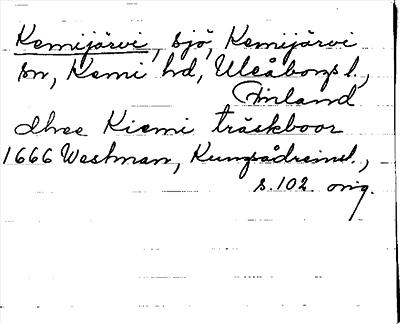 Kemijärvi, sjö, Kemijärvi
sn, Kemi hd, Uleåborgs l.,
Finland
dhee Kiemi träskboor
1666 Westman, Kungsådreinv.,
s. 102 orig.